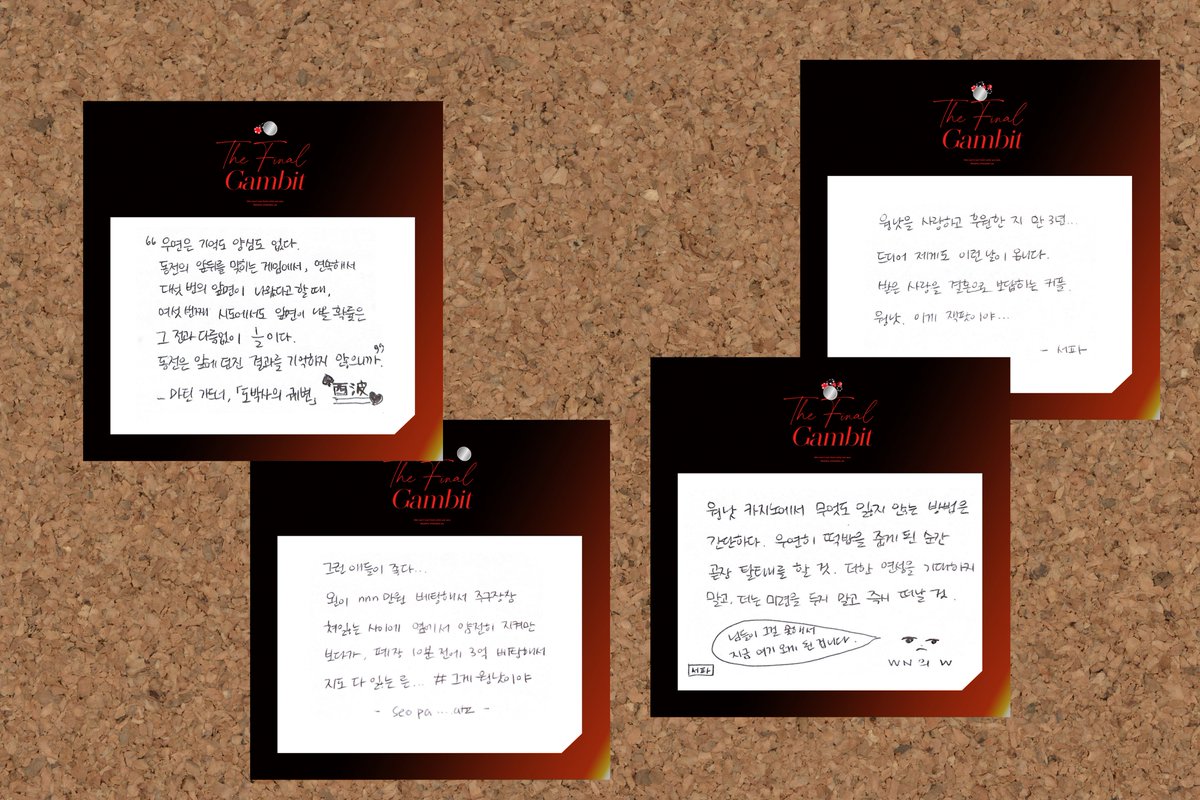 The Final
Gambit
“ 우연은 기억도 양심도 없다.
동전의 앞뒤를 맞히는 게임에서, 연속해서
다섯 번의 앞면이 나왔다고 할 때,
여섯 번째 시도에서도 앞면이 나올 확률은
그 전과 다름없이 1/2 이다.
동전은 앞에 던진 결과를 기억하지 않으니까.”
- 마틴 가드너, 「도박사의 궤변」 西波
The Final
Gambit
그런 애들이 죽다...
원이 nnn만원 베팅해서 주구장창
쳐잃는 사이에 옆에서 얌전히 지켜만
보다가, 폐장 10분 전에 3억 베팅해서
지도 다 잃는 른... # 그게 웡낫이야
- seo pa ....
The Final
Gambit
웡낫을 사랑하고 후원한 지 만 3년...
드디어 제게도 이런 날이 옵니다.
받은 사랑을 결혼으로 보답하는 커플.
웡낫, 이게 잭팟이야...
- 서파
The Final
Gambit
웡낫 카지노에서 무엇도 잃지 않는 방법은
간단하다. 우연히 떡밥을 줍게 된 순간
곧장 탈태내를 할 것. 더한 연성을 기대하지
말고, 더는 미련을 두지 않고 즉시 떠날 것.
님들이 그걸 못해서
지금 여기 오게 된 겁니다.
WN의 W
서파